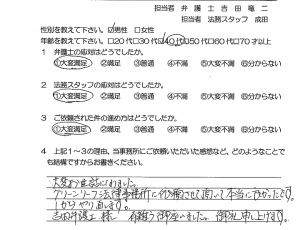 担当者 弁護士 吉田 竜二
担当者 法務スタッフ 成田
性別を教えて下さい。 ☑男性 □女性
年齢を教えて下さい。 □20代□30代☑40代□50代□60代□70才以上
1 弁護士の応対はどうでしたか。
①大変満足 ②満足 ③普通 ④不満 ⑤大変不満 ⑥分からない
2 法務スタッフの応対はどうでしたか。
①大変満足 ②満足 ③普通 ④不満 ⑤大変不満 ⑥分からない
3 ご依頼された件の進め方はどうでしたか。
①大変満足 ②満足 ③普通 ④不満 ⑤大変不満 ⑥分からない
4 上記1～3の理由、当事務所にご依頼いただいた感想など、どのようなことで
も結構ですからお書きください。
大変お世話になりました。
グリーンリーフ法律事務所に依頼させて頂いて本当に良かったです。
1からやり直します。
吉田弁護士様 有難う御座いました。御礼申し上げます。